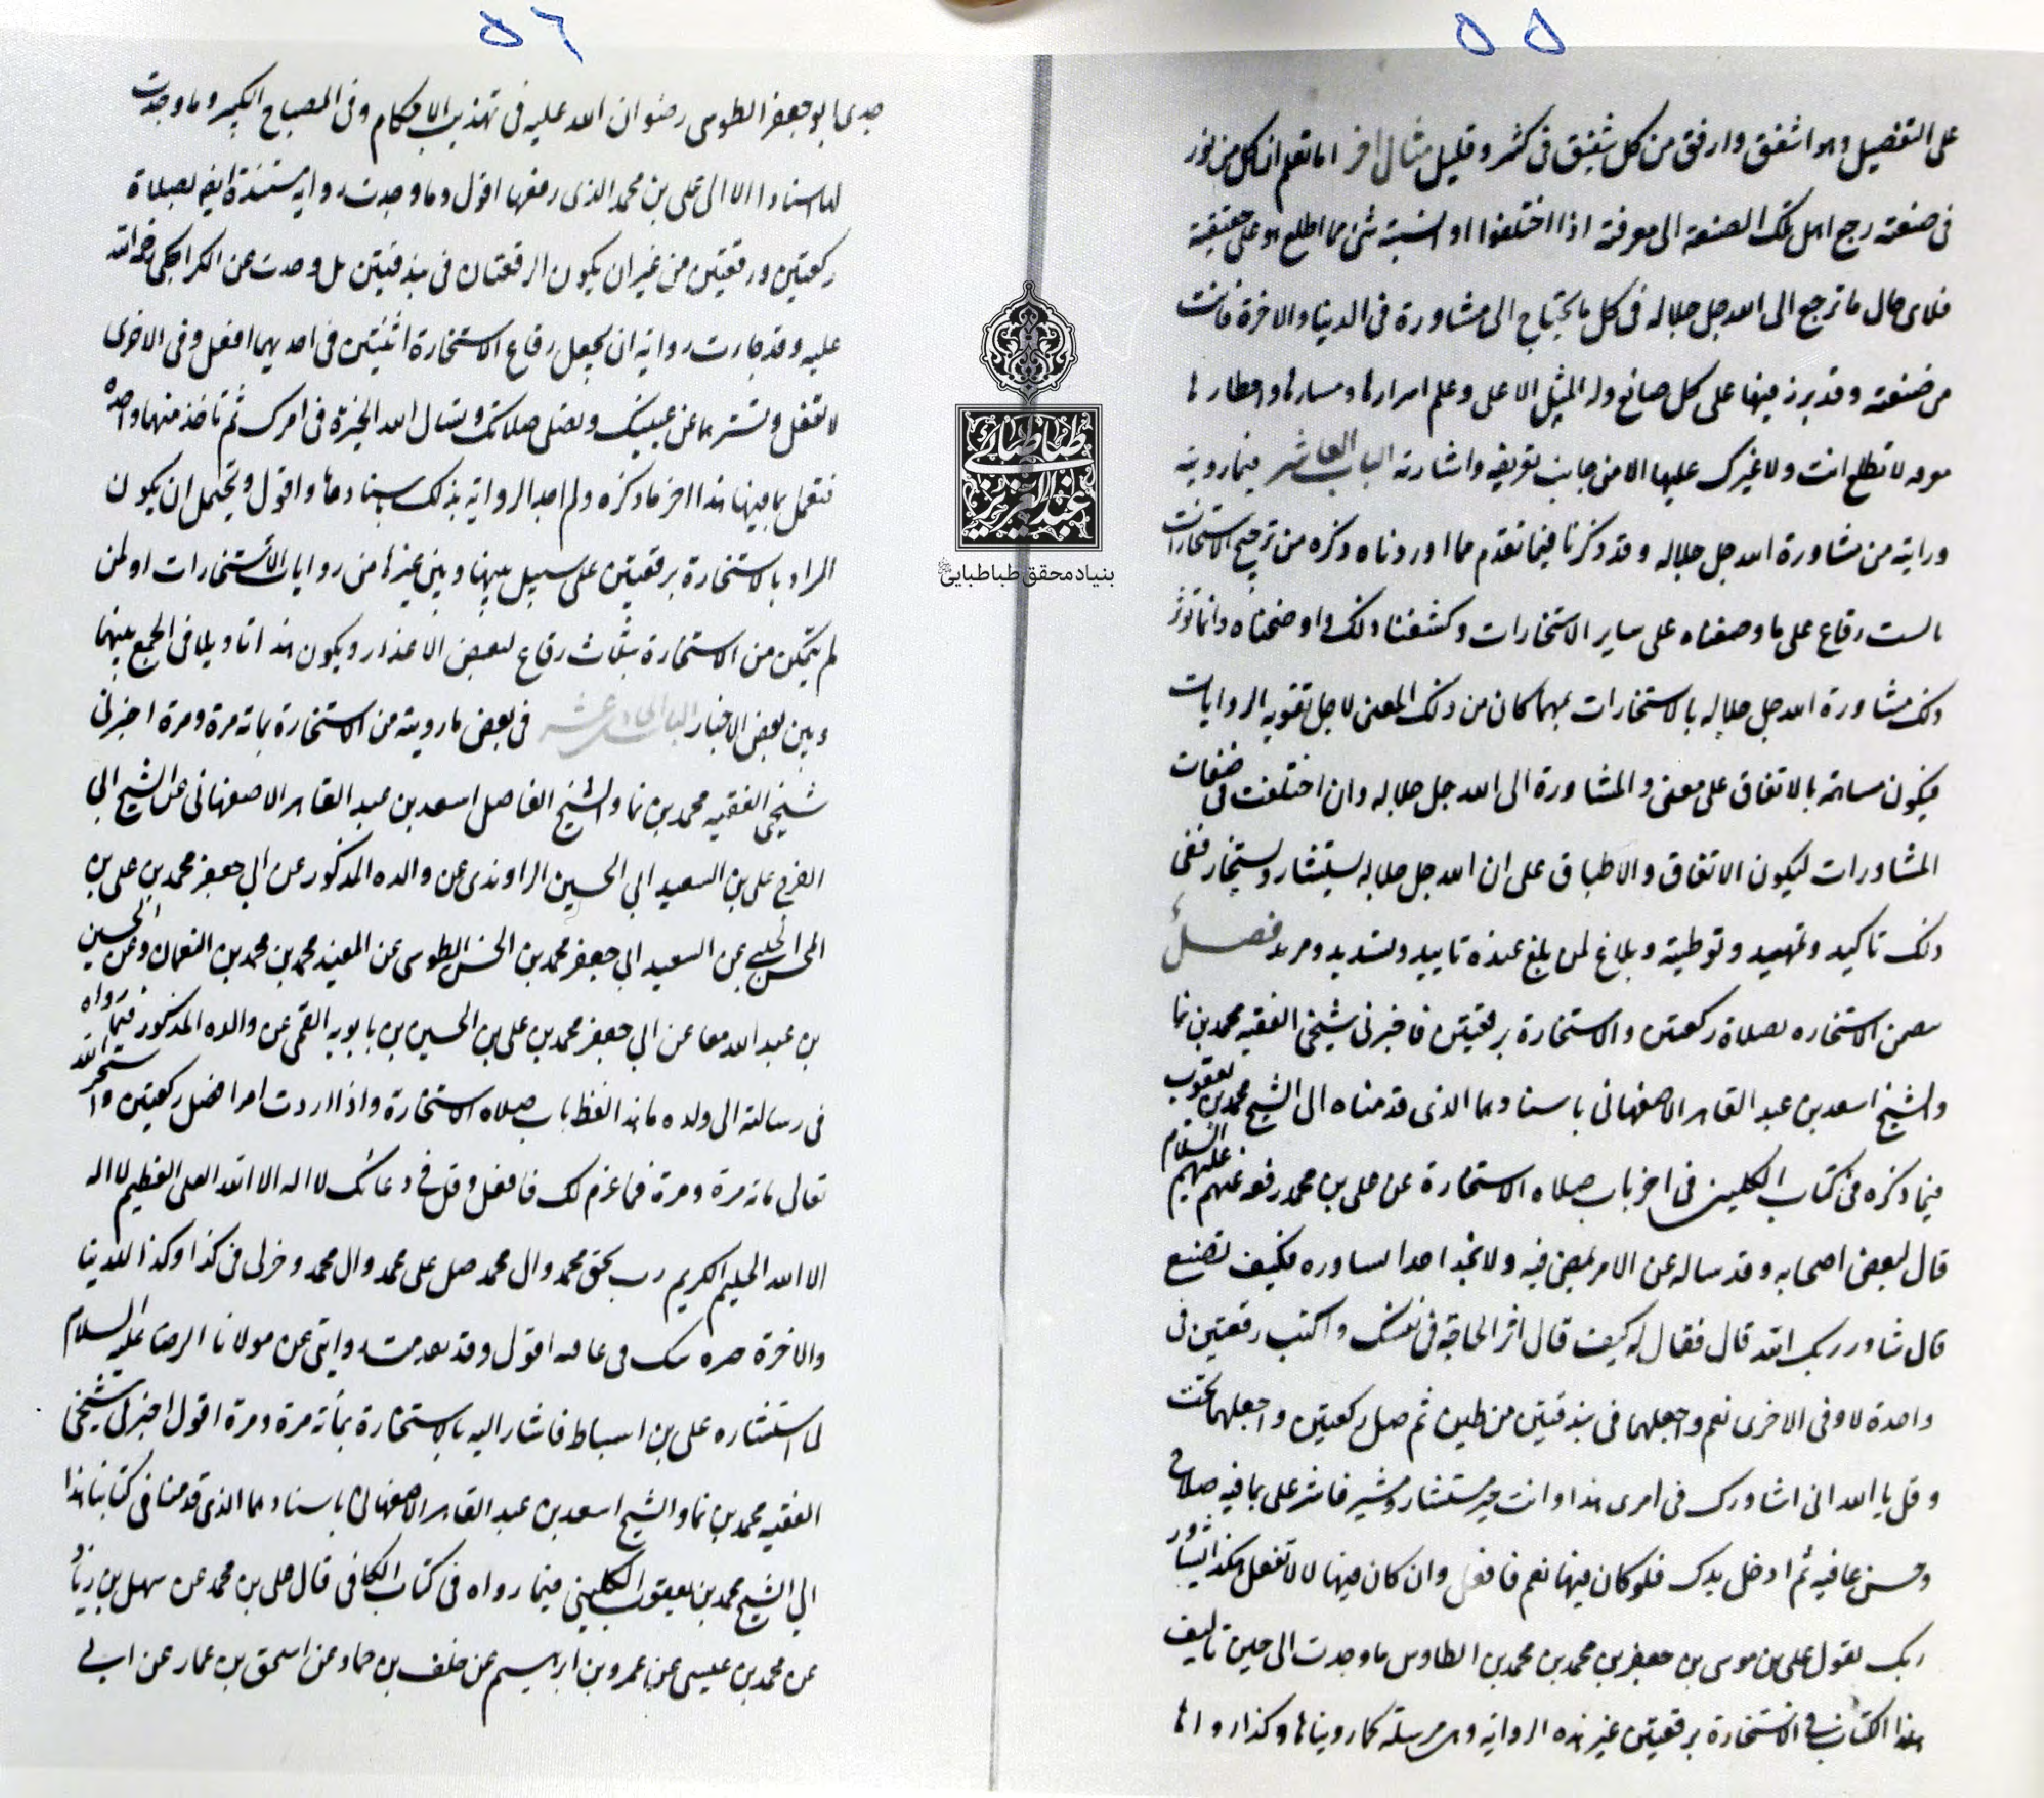 ٥٥
على التفضيل وهو اشفق وارفق من كل شفيق فى كثير وقليل مثال اخر اما تعلم ان كل من نور
فى صنعته رجع اهل تلك الصنعة الى معرفته اذا اختلفوا او اشتبه شئ مما اطلع هو على حقيقته
فلاى حال ما ترجع الى الله جل جلاله فى كل ما يحتاج الى مشاورة فى الدينا والاخرة فانت
من صنعته وقد برز فيها على كل صانع وله المثل الاعلى وعلم اسرارها ومسارها واخطارها
موه لا تطلع انت ولا غيرك عليها الا من جانب تعريفه واشارته الباب العاشر فيما رويته
ورايته من مشاورة الله جل جلاله وقد ذكرنا فيما تقدم مما اوردناه وذكره من ترجيح الاستخارات
بالست رقاع على ما وصفناه على ساير الاستخارات وكشفنا ذلك واوضحناه وانما نور
ذلك مشاورة الله جل جلاله بالاستخارات مهما كان من ذلك المعنى لاجل تقويه الروايات
فيكون مسامة بالاتفاق على معنى والمشاورة الى الله جل جلاله وان اختلفت فى صفات
المشاورات ليكون الاتفاق والاطباق على ان الله جل جلاله يستشار ويستخار ففى
ذلك تاكيد وتمهيد وتوطية وبلاغ لمن بلغ عنده تاييد وتسديد ومريد فصل
يتضمن الاستخاره بصلاة ركعتين والاستخارة برقعتين فاخبرنى شيخى الفقيه محمد بن نما
والشيخ اسعد بن عبد القاهر الاصفهانى باسنادهما الذى قدمناه الى الشيخ محمد بن يعقوب
فيما ذكره فى كتاب الكلينى فى اخر باب صلاه الاستخارة عن على بن محمد رفعه عنهم عليهم السلام
قال لبعض اصحابه وقد ساله عن الامر يمضى فيه ولا يجد احدا يساوره فكيف تصنع
قال شاور ربك الله قال فقال له كيف قال انو الحاجة فى نفسك واكتب رقعتين فى
واحدة لا وفى الاخرى نعم واجعلهما فى بندقتين من طين ثم صل ركعتين واجعلهما تحت
وقل يا الله انى اشاورك فى امرى هذا وانت خير مستشار ومشير فاشر على بما فيه صلاح
وحسن عافيه ثم ادخل يدك فلو كان فيها نعم فافعل وان كان فيها لا لا تفعل هكذا تشاور
ربك يقول على بن موسى بن جعفر بن محمد بن محمد بن الطاوس ما وجدت الى حين تاليف
هذا الكتاب فى الاستخارة برقعتين غير هذه الرواية وهى مرسلة كما رويناها وكذا رواها
٥٦
جدى ابو جعفر الطوسى رضوان الله عليه فى تهذيب الاحكام وفى المصباح الكبير وما وجدت
لها اسنادا الا الى على بن محمد الذى رفعها اقول وما وجدت رواية مسندة ايضا بصلاة
ركعتين ورقعتين من غير ان يكون الرقعتان فى بندقيتين بل وجدت عن الكراجكى رحمة الله
عليه وقد جاءت رواية ان يجعل رقاع الاستخارة اثنتين فى احديهما افعل وفى الاخرى
لا تفعل وتسترهما عن عينيك وتصلى صلاتك وتسال الله الخيرة فى امرك ثم تاخذ منهما واحدة
فتعمل بما فيها هذا اخر ما ذكره ولم اجد الرواية بذلك باسنادها واقول ويحتمل ان يكون
المراد بالاستخارة برقعتين على سبيل بينها وبين غيرها من روايات الاستخارات او لمن
لم يتمكن من الاستخارة بثلث رقاع لبعض الاعذار ويكون هذا تاويلا فى الجمع بينها
وبين بعض الاخبار الباب الحادى عشر فى بعض ما رويته من الاستخارة بماته مرة ومرة اخبرنى
شيخى الفقيه محمد بن نما والشيخ الفاضل اسعد بن عبد القاهر الاصفهانى عن الشيخ ابى
الفرج على بن السعيد ابى الحسين الراوندى عن والده المذكور عن ابى جعفر محمد بن على بن
المحسن الحلبى عن السعيد ابى جعفر محمد بن الحسن الطوسى عن المفيد محمد بن محمد بن النعمان وعن الحسين
بن عبد الله معا عن ابى جعفر محمد بن على بن الحسين بن بابويه القمى عن والده المذكور فيما رواه
فى رسالته الى ولده ما هذا لفظه باب صلاه الاستخارة واذا اردت امرا فصل ركعتين واستخر الله
تعالى ماته مرة ومرة فما عزم لك فافعل وقل فى دعائك لا اله الا الله العلى العظيم لا اله
الا الله الحليم الكريم رب بحق محمد وال محمد صل على محمد وال محمد وخر لى فى كذا وكذا للدينا
والاخرة خيره منك فى عافيه اقول وقد تقدمت روايتى عن مولانا الرضا عليه السلام
لما استشاره على بن اسباط فاشار اليه بالاستخارة بمأته مرة ومرة اقول اخبرنى شيخى
الفقيه محمد بن نما والشيخ اسعد بن عبد القاهر الاصفهانى باسنادهما الذى قدمنا فى كتابنا هذا
الى الشيخ محمد بن يعقوب الكلينى فيما رواه فى كتاب الكافى قال على بن محمد عن سهل بن زياد
عن محمد بن عيسى عن عمرو بن ابراهيم عن خلف بن حماد عن اسحق بن عمار عن ابى
طباطبائى
عبد العزيز
بنیاد محقق طباطبایی